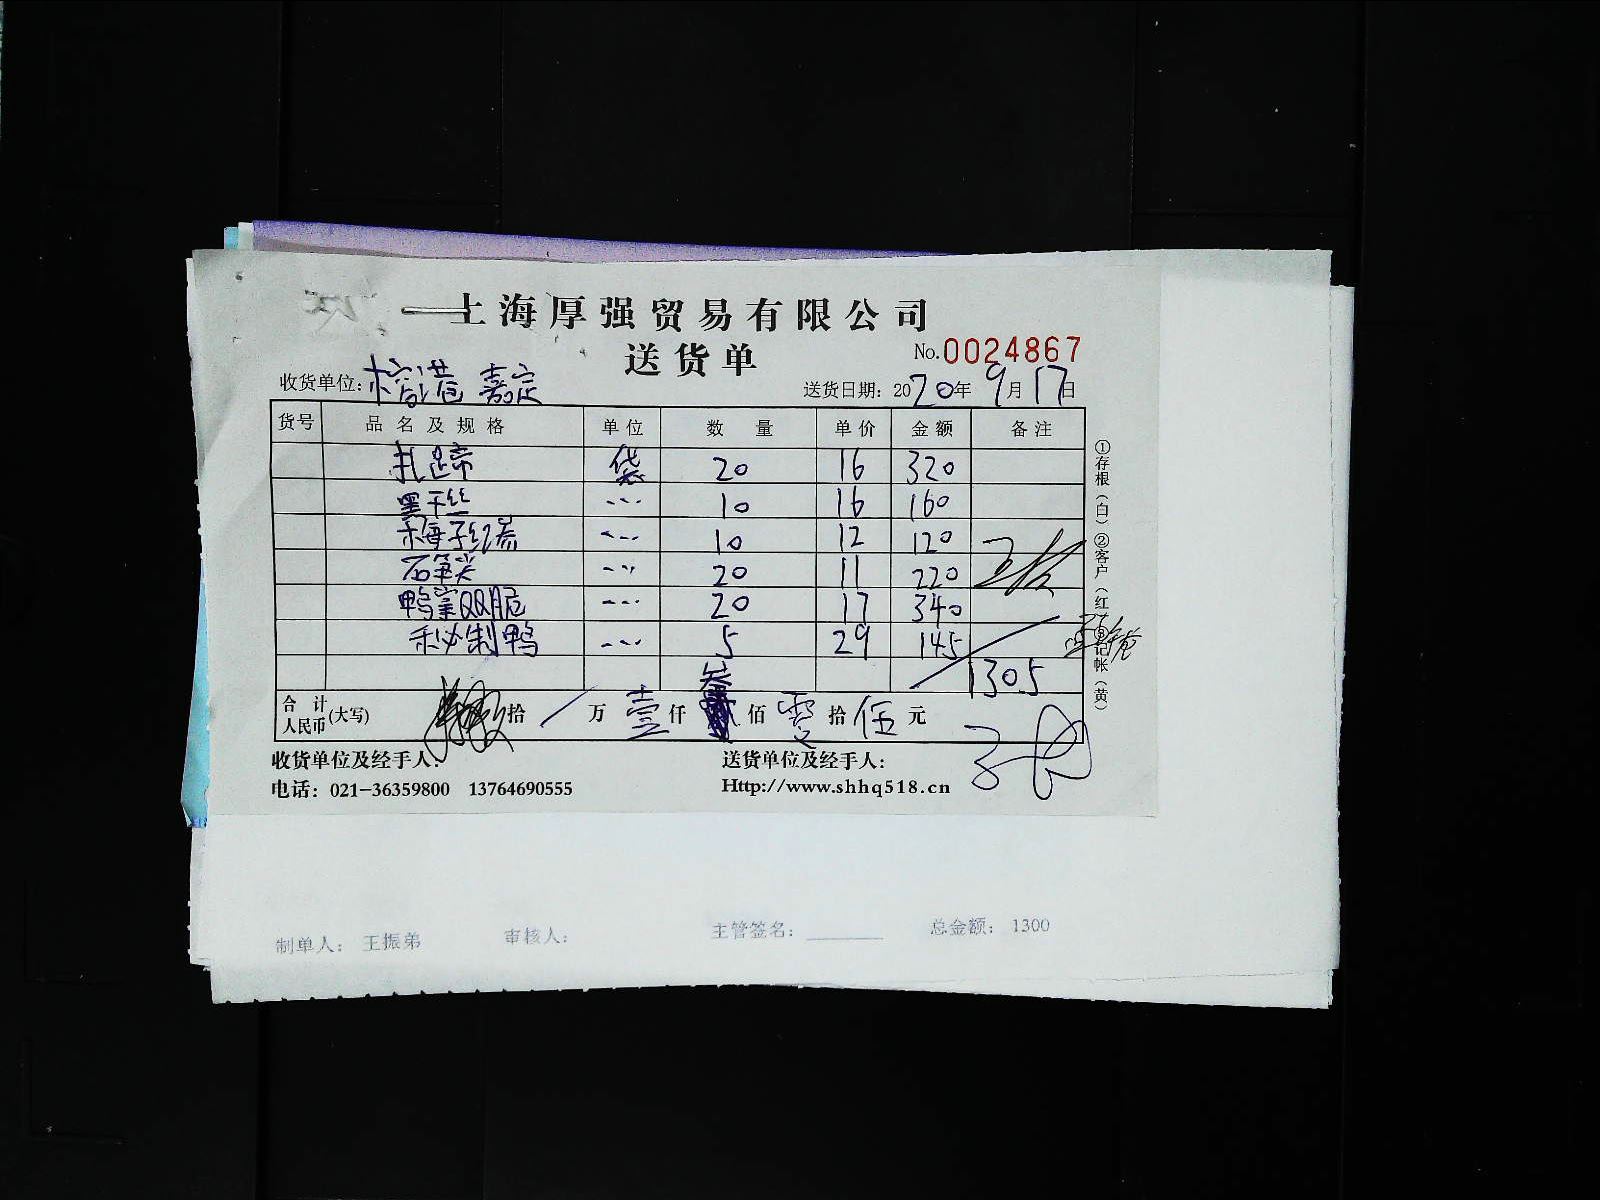 上海厚强贸易有限公司
送货单 No.0024867
收货单位: 榕港 嘉定 送货日期: 2020年9月17日
货号 品名及规格 单位 数量 单价 金额 备注
扎蹄 袋 20 16 320
黑干丝 ---- 10 16 160
梅子红参 ---- 10 12 120
石笋尖 ---- 20 11 220
鸭掌QQ脆 ---- 20 17 340
秘制鸭 ---- 5 29 145
1305
合计人民币(大写) 拾 / 万 壹 仟 叁 佰 零 拾 伍 元
①存根(白)②客户(红)③记帐(黄)
收货单位及经手人: 送货单位及经手人:
电话: 021-36359800 13764690555 Http://www.shhq518.cn
制单人: 王振弟 审核人: 主管签名: ________ 总金额: 1300